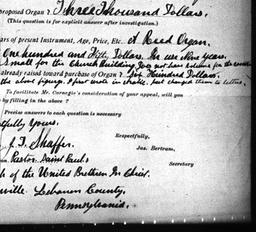 proposed Organ? Three Thousand Dollars.
(This question is for explicit answer after investigation.)
rs of present Instrument, Age, Price, Etc. A Reed Organ.
One hundred and Fifty Dollars. In use Nine years.
small for the Church Building. Does not have volume for the
already raised toward purchase of Organ? Six Hundred Dollars.
the first figures. I first wrote in but changed them to letters.
To facilitate Mr. Carnegie's consideration of your appeal, will you
by filling in the above?
Precise answers to each question is necessary
tfully Yours,
Respectfully,
J. F. Shaffer
Jas. Bertram,
Pastor Saint Paul's
Secretary
h of the United Brethren In Christ.
ville. Lebanon County,
Pennsylvania.